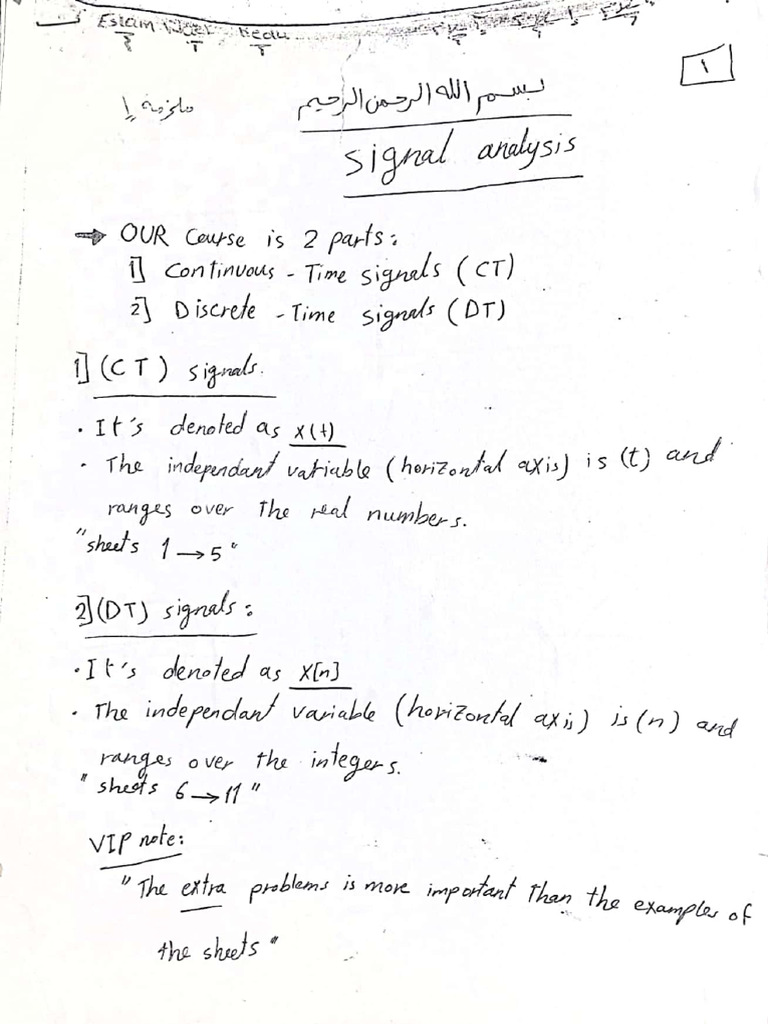 Eslam
١
ملزمة ١
بسم الله الرحمن الرحيم
signal analysis
⇒ OUR Course is 2 parts:
1] Continuous - Time signals (CT)
2] Discrete - Time signals (DT)
1] (CT) signals.
. It's denoted as x(t)
. The independant variable (horizontal axis) is (t) and
ranges over the real numbers.
"sheets 1 → 5"
2] (DT) signals:
. It's denoted as x[n]
. The independant variable (horizontal axis) is (n) and
ranges over the integers.
"sheets 6 → 11"
VIP note:
"The extra problems is more important than the examples of
the sheets"